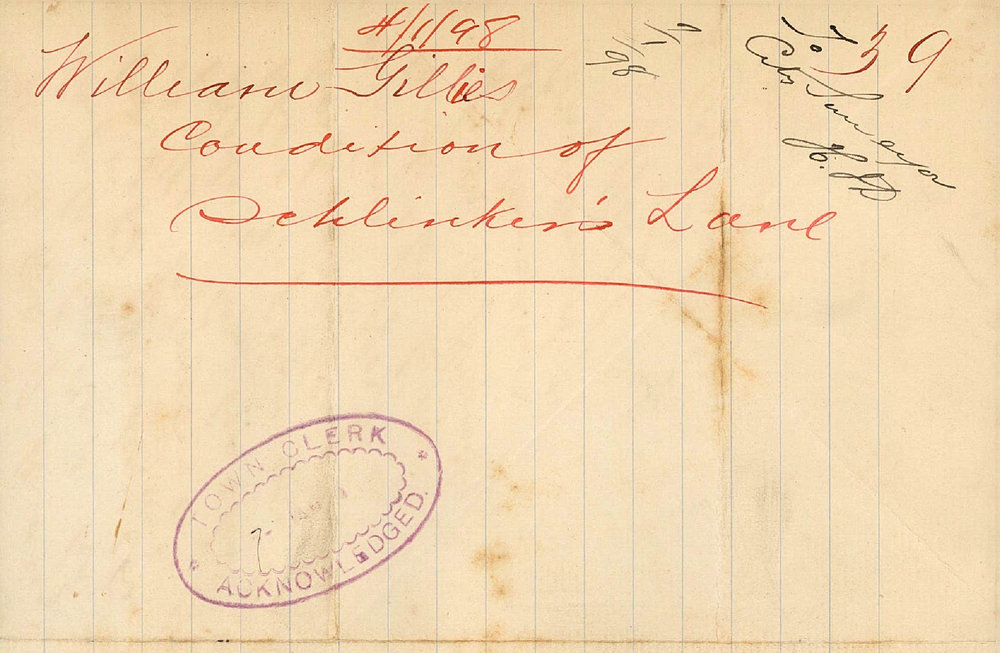 4/1/98
39
William Gillies
Condition of
Schlinker's Lane
To
City Surveyor
7/1/98
TOWN CLERK
7
ACKNOWLEDGED.